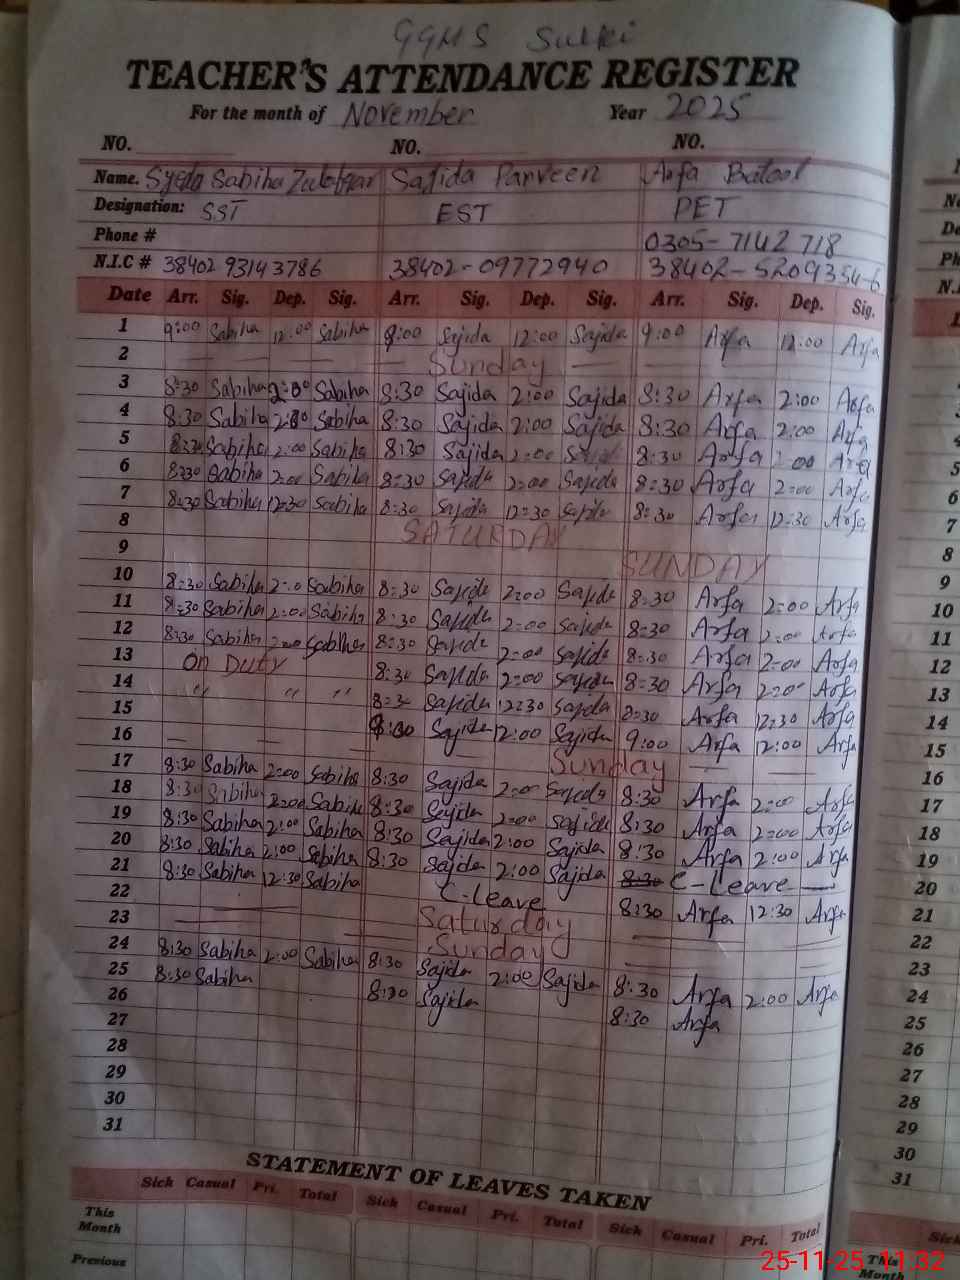 GGMS Sulki
TEACHER'S ATTENDANCE REGISTER
For the month of November Year 2025
NO. NO. NO.
Name. Syeda Sabiha Zulafqar Sajida Parveen Arfa Batool
Designation: SST EST PET
Phone # 0305-7142718
N.I.C # 38402 9314 3786 38402-09772940 38402-5209354-6
Date Arr. Sig. Dep. Sig. Arr. Sig. Dep. Sig. Arr. Sig. Dep. Sig.
1 9:00 Sabiha 12:00 Sabiha 9:00 Sajida 12:00 Sajida 9:00 Arfa 12:00 Arfa
2 Sunday
3 8:30 Sabiha 2:00 Sabiha 8:30 Sajida 2:00 Sajida 8:30 Arfa 2:00 Arfa
4 8:30 Sabiha 2:00 Sabiha 8:30 Sajida 2:00 Sajida 8:30 Arfa 2:00 Arfa
5 8:30 Sabiha 2:00 Sabiha 8:30 Sajida 2:00 8:30 Arfa 2:00 Arfa
6 8:30 Sabiha 2:00 Sabiha 8:30 Sajida 2:00 Sajida 8:30 Arfa 2:00 Arfa
7 8:30 Sabiha 12:30 Sabiha 8:30 Sajida 12:30 Sajida 8:30 Arfa 12:30 Arfa
8 SATURDAY
9 SUNDAY
10 8:30 Sabiha 2:00 Sabiha 8:30 Sajida 2:00 Sajida 8:30 Arfa 2:00 Arfa
11 8:30 Sabiha 2:00 Sabiha 8:30 Sajida 2:00 Sajida 8:30 Arfa 2:00 Arfa
12 8:30 Sabiha 2:00 Sabiha 8:30 Sajida 2:00 Sajida 8:30 Arfa 2:00 Arfa
13 On Duty 8:30 Sajida 2:00 Sajida 8:30 Arfa 2:00 Arfa
14 " " " 8:30 Sajida 12:30 Sajida 8:30 Arfa 12:30 Arfa
15 9:00 Sajida 12:00 Sajida 9:00 Arfa 12:00 Arfa
16 Sunday
17 8:30 Sabiha 2:00 Sabiha 8:30 Sajida 2:00 Sajida 8:30 Arfa 2:00 Arfa
18 8:30 Sabiha 2:00 Sabiha 8:30 Sajida 2:00 Sajida 8:30 Arfa 2:00 Arfa
19 8:30 Sabiha 2:00 Sabiha 8:30 Sajida 2:00 Sajida 8:30 Arfa 2:00 Arfa
20 8:30 Sabiha 2:00 Sabiha 8:30 Sajida 2:00 Sajida 8:30 C-Leave
21 8:30 Sabiha 12:30 Sabiha C-Leave 8:30 Arfa 12:30 Arfa
22 Saturday
23 Sunday
24 8:30 Sabiha 2:00 Sabiha 8:30 Sajida 2:00 Sajida 8:30 Arfa 2:00 Arfa
25 8:30 Sabiha 8:30 Sajida 8:30 Arfa
26
27
28
29
30
31
STATEMENT OF LEAVES TAKEN
Sick Casual Pri. Total Sick Casual Pri. Total Sick Casual Pri. Total
This Month
Previous
1
2
3
4
5
6
7
8
9
10
11
12
13
14
15
16
17
18
19
20
21
22
23
24
25
26
27
28
29
30
31
Sick
This Month
25-11-25 11:32